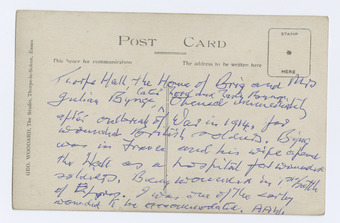 POST CARD
This Space for communication
The address to be written here
STAMP
HERE
GEO. WOODARD, The Studio, Thorpe-le-Soken, Essex
Thorpe Hall, the Home of Brig and Mrs
Julian Byng, (later Lord and Lady Byng), Opened immediately
after outbreak of War in 1914, for
wounded British soldiers. Byng
was in France and his wife opened
the Hall as a hospital for wounded
soldiers. Being wounded in 1st Battle
of Ypres. I was one of the early
wounded to be accommodated.